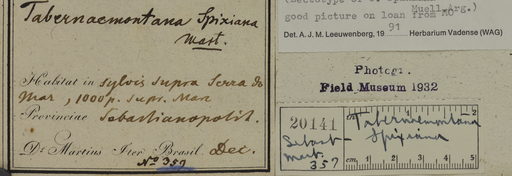 Tabernaemontana Spixiana
Mart.
Habitat in sylvis supra Serra do
Mar, 1000 p. supr. Mare
Provinciae Sebastianopolit.
Dr. Martius Iter Brasil. Dec.
No 357
Muell.Arg.)
good picture on loan from MO
Det. A. J. M. Leeuwenberg, 19 91 Herbarium Vadense (WAG)
Photogr.
Field Museum 1932
20141
Tabernaemontana
Spixiana
Mart.
357
cm. 1 2 3 4 5